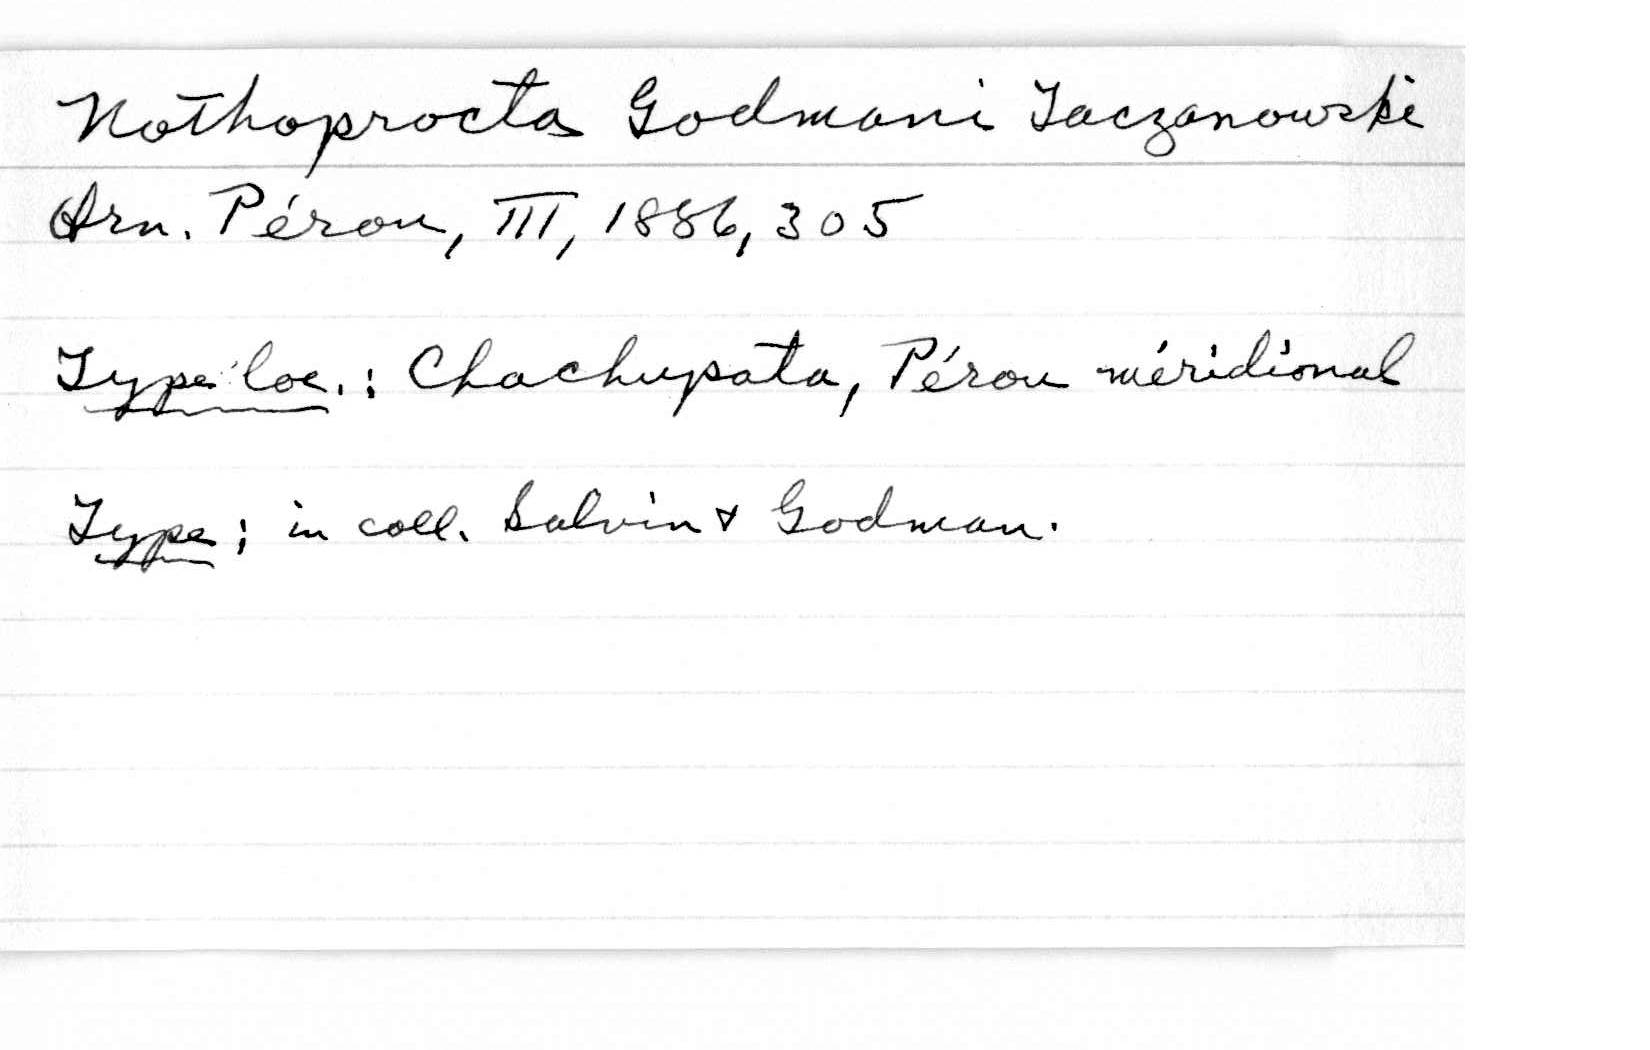 Nothoprocta Godmani Taczanowski
Orn. Pérou, III, 1886, 305
Type loc.: Chachupata, Pérou méridional
Type; in coll. Salvin & Godman.